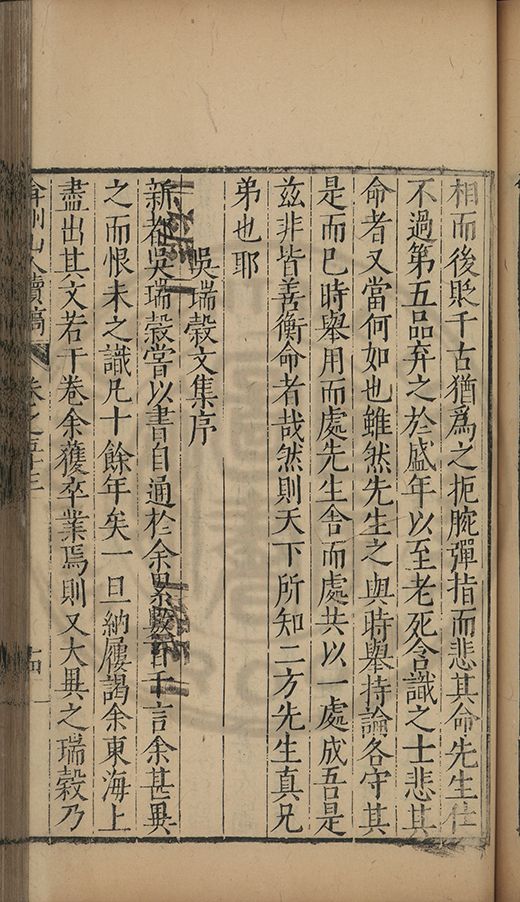 相而後貶千古猶爲之扼腕彈指而悲其命先生仕
不過第五品弃之於盛年以至老死含識之士悲其
命者又當何如也雖然先生之與時舉持論各守其
是而已時舉用而處先生舎而處共以一處成吾是
兹非皆善衡命者哉然則天下所知二方先生真兄
弟也耶
吳瑞穀文集序
新都吳瑞穀嘗以書自通於余累數百千言余甚異
之而恨未之識凡十餘年矣一旦納履謁余東海上
盡出其文若干卷余獲卒業焉則又大異之瑞穀乃
弇州山人續稿 卷之五十三 十四